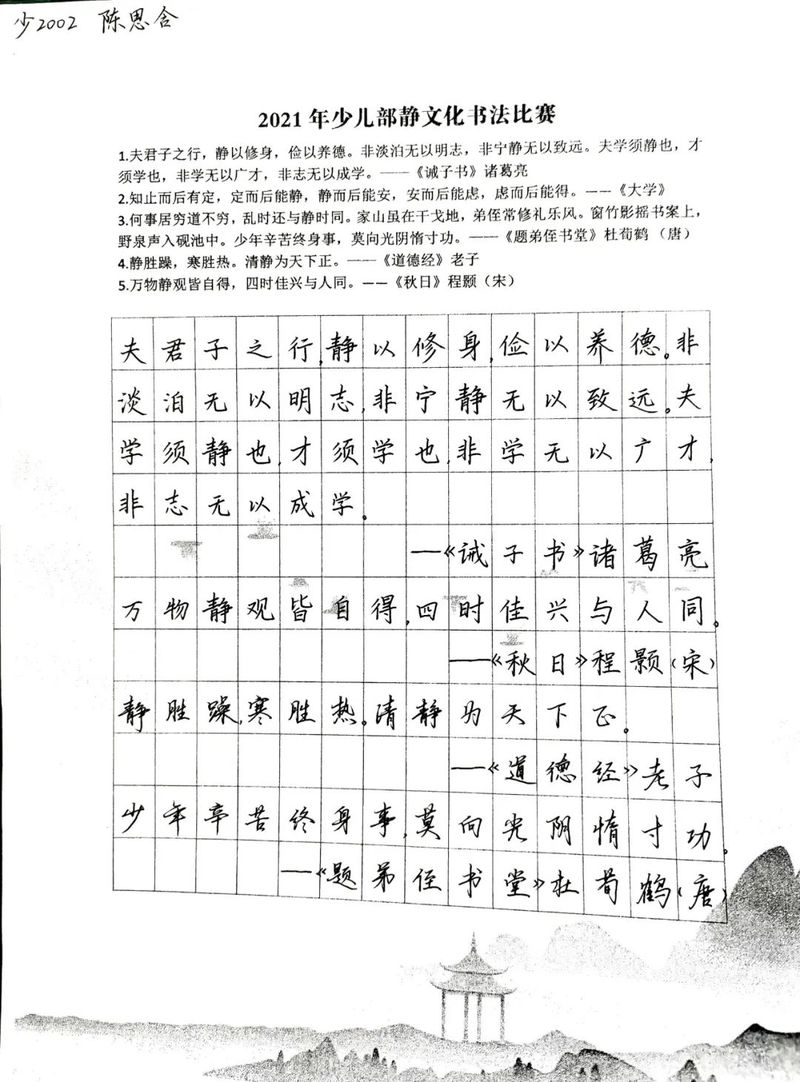 少2002 陈思含
2021年少儿部静文化书法比赛
1.夫君子之行，静以修身，俭以养德。非淡泊无以明志，非宁静无以致远。夫学须静也，才
须学也，非学无以广才，非志无以成学。——《诫子书》诸葛亮
2.知止而后有定，定而后能静，静而后能安，安而后能虑，虑而后能得。——《大学》
3.何事居穷道不穷，乱时还与静时同。家山虽在干戈地，弟侄常修礼乐风。窗竹影摇书案上，
野泉声入砚池中。少年辛苦终身事，莫向光阴惰寸功。——《题弟侄书堂》杜荀鹤（唐）
4.静胜躁，寒胜热。清静为天下正。——《道德经》老子
5.万物静观皆自得，四时佳兴与人同。——《秋日》程颢（宋）
夫君子之行，静以修身，俭以养德。非
淡泊无以明志，非宁静无以致远。夫
学须静也，才须学也，非学无以广才，
非志无以成学。
——《诫子书》诸葛亮
万物静观皆自得，四时佳兴与人同。
——《秋日》程颢（宋）
静胜躁，寒胜热。清静为天下正。
——《道德经》老子
少年辛苦终身事，莫向光阴惰寸功。
——《题弟侄书堂》杜荀鹤（唐）